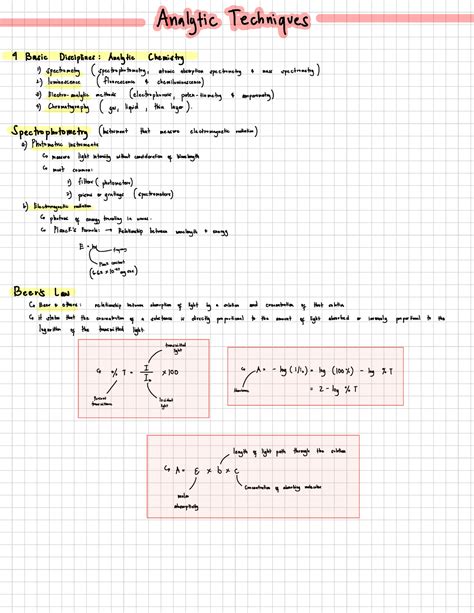 Analytic Techniques
4 Basic Disciplines: Analytic Chemistry
1) spectrometry (spectrophotometry, atomic absorption spectrometry & mass spectrometry)
2) luminescence (fluorescence & chemiluminescence)
3) Electro-analytic methods (electrophoresis, poten-tiometry & amperometry)
4) Chromatography (gas, liquid, thin layer).
Spectrophotometry (Instrument that measure electromagnetic radiation)
a) Photometric instruments
measure light intensity without consideration of wavelength
most common:
1) filter (photometers)
2) prisms or gratings (spectrometers)
b) Electromagnetic radiation
photons of energy traveling in waves.
Planck's Formula: → Relationship between wavelength & energy
E = hv
frequency
Planck constant
erg sec)
Beer's Law
Beer & others: relationship between absorption of light by a solution and concentration of that solution
it states that the concentration of a substance is directly proportional to the amount of light absorbed or inversely proportional to the
logarithm of the transmitted light.
transmitted
light
% T = I/I₀ ×100
Percent
transmittance
Incident
light
A = - log (I/I₀) = log (100%) - log % T
= 2 - log % T
Absorbance
length of light path through the solution
A = ε × b × c
molar
absorptivity
Concentration of absorbing molecules